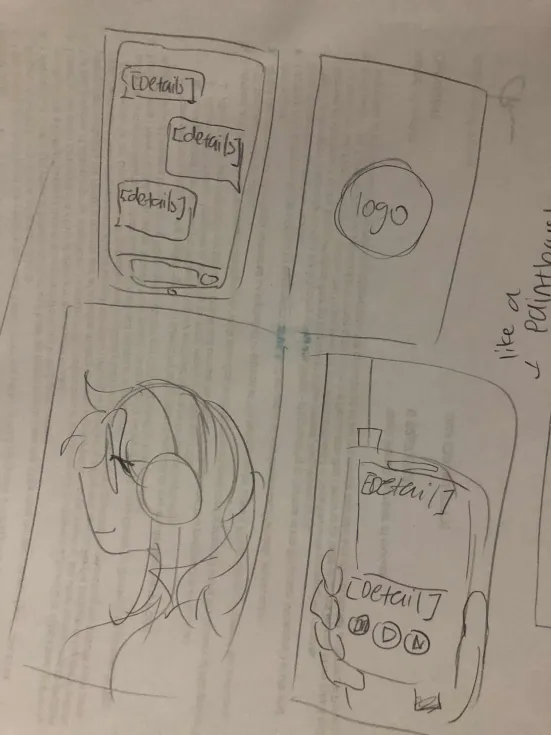 [Details]
[details]
[details]
logo
like a
paintbrush
[Detail]
[Detail]